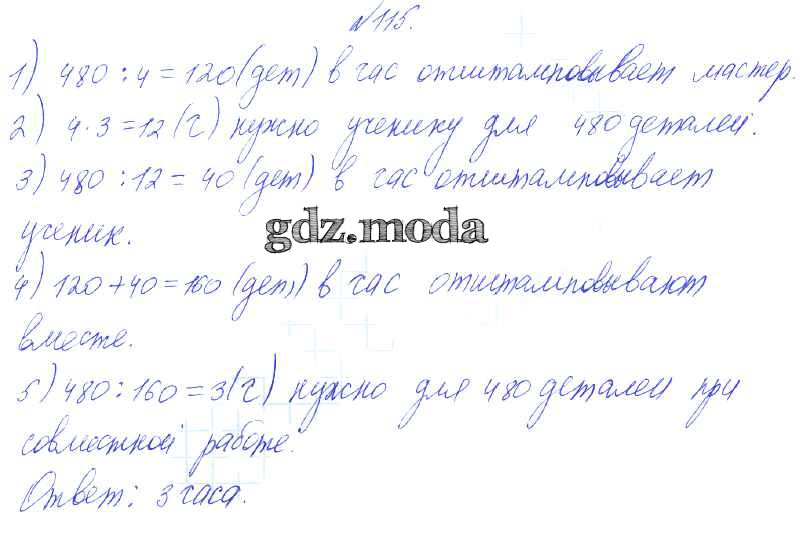 №115.
1) 480 : 4 = 120 (дет) в час отштамповывает мастер.
2) 4 · 3 = 12 (ч) нужно ученику для 480 деталей.
3) 480 : 12 = 40 (дет) в час отштамповывает
ученик.
gdz.moda
4) 120 + 40 = 160 (дет) в час отштамповывают
вместе.
5) 480 : 160 = 3 (ч) нужно для 480 деталей при
совместной работе.
Ответ: 3 часа.